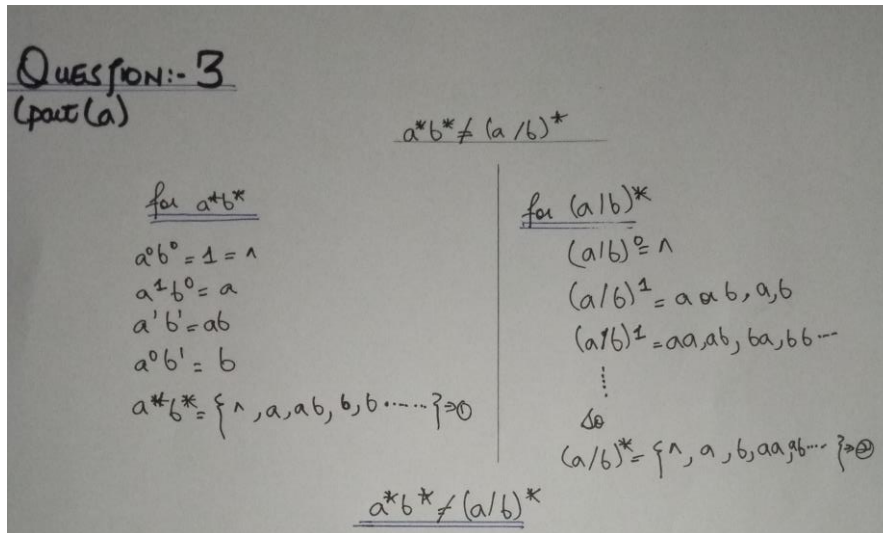 QUESTION:- 3
(part (a)
a*b* ≠ (a/b)*
for a*b*
a⁰b⁰ = 1 = ^
a¹b⁰ = a
a'b' = ab
a⁰b' = b
a*b* = { ^, a, ab, b, b ...... } ⇒ ①
for (a/b)*
(a/b)⁰ = ^
(a/b)¹ = a a b, a, b
(a/b)¹ = aa, ab, ba, bb ...
⋮
So
(a/b)* = { ^, a, b, aa, ab ... } ⇒ ②
a*b* ≠ (a/b)*